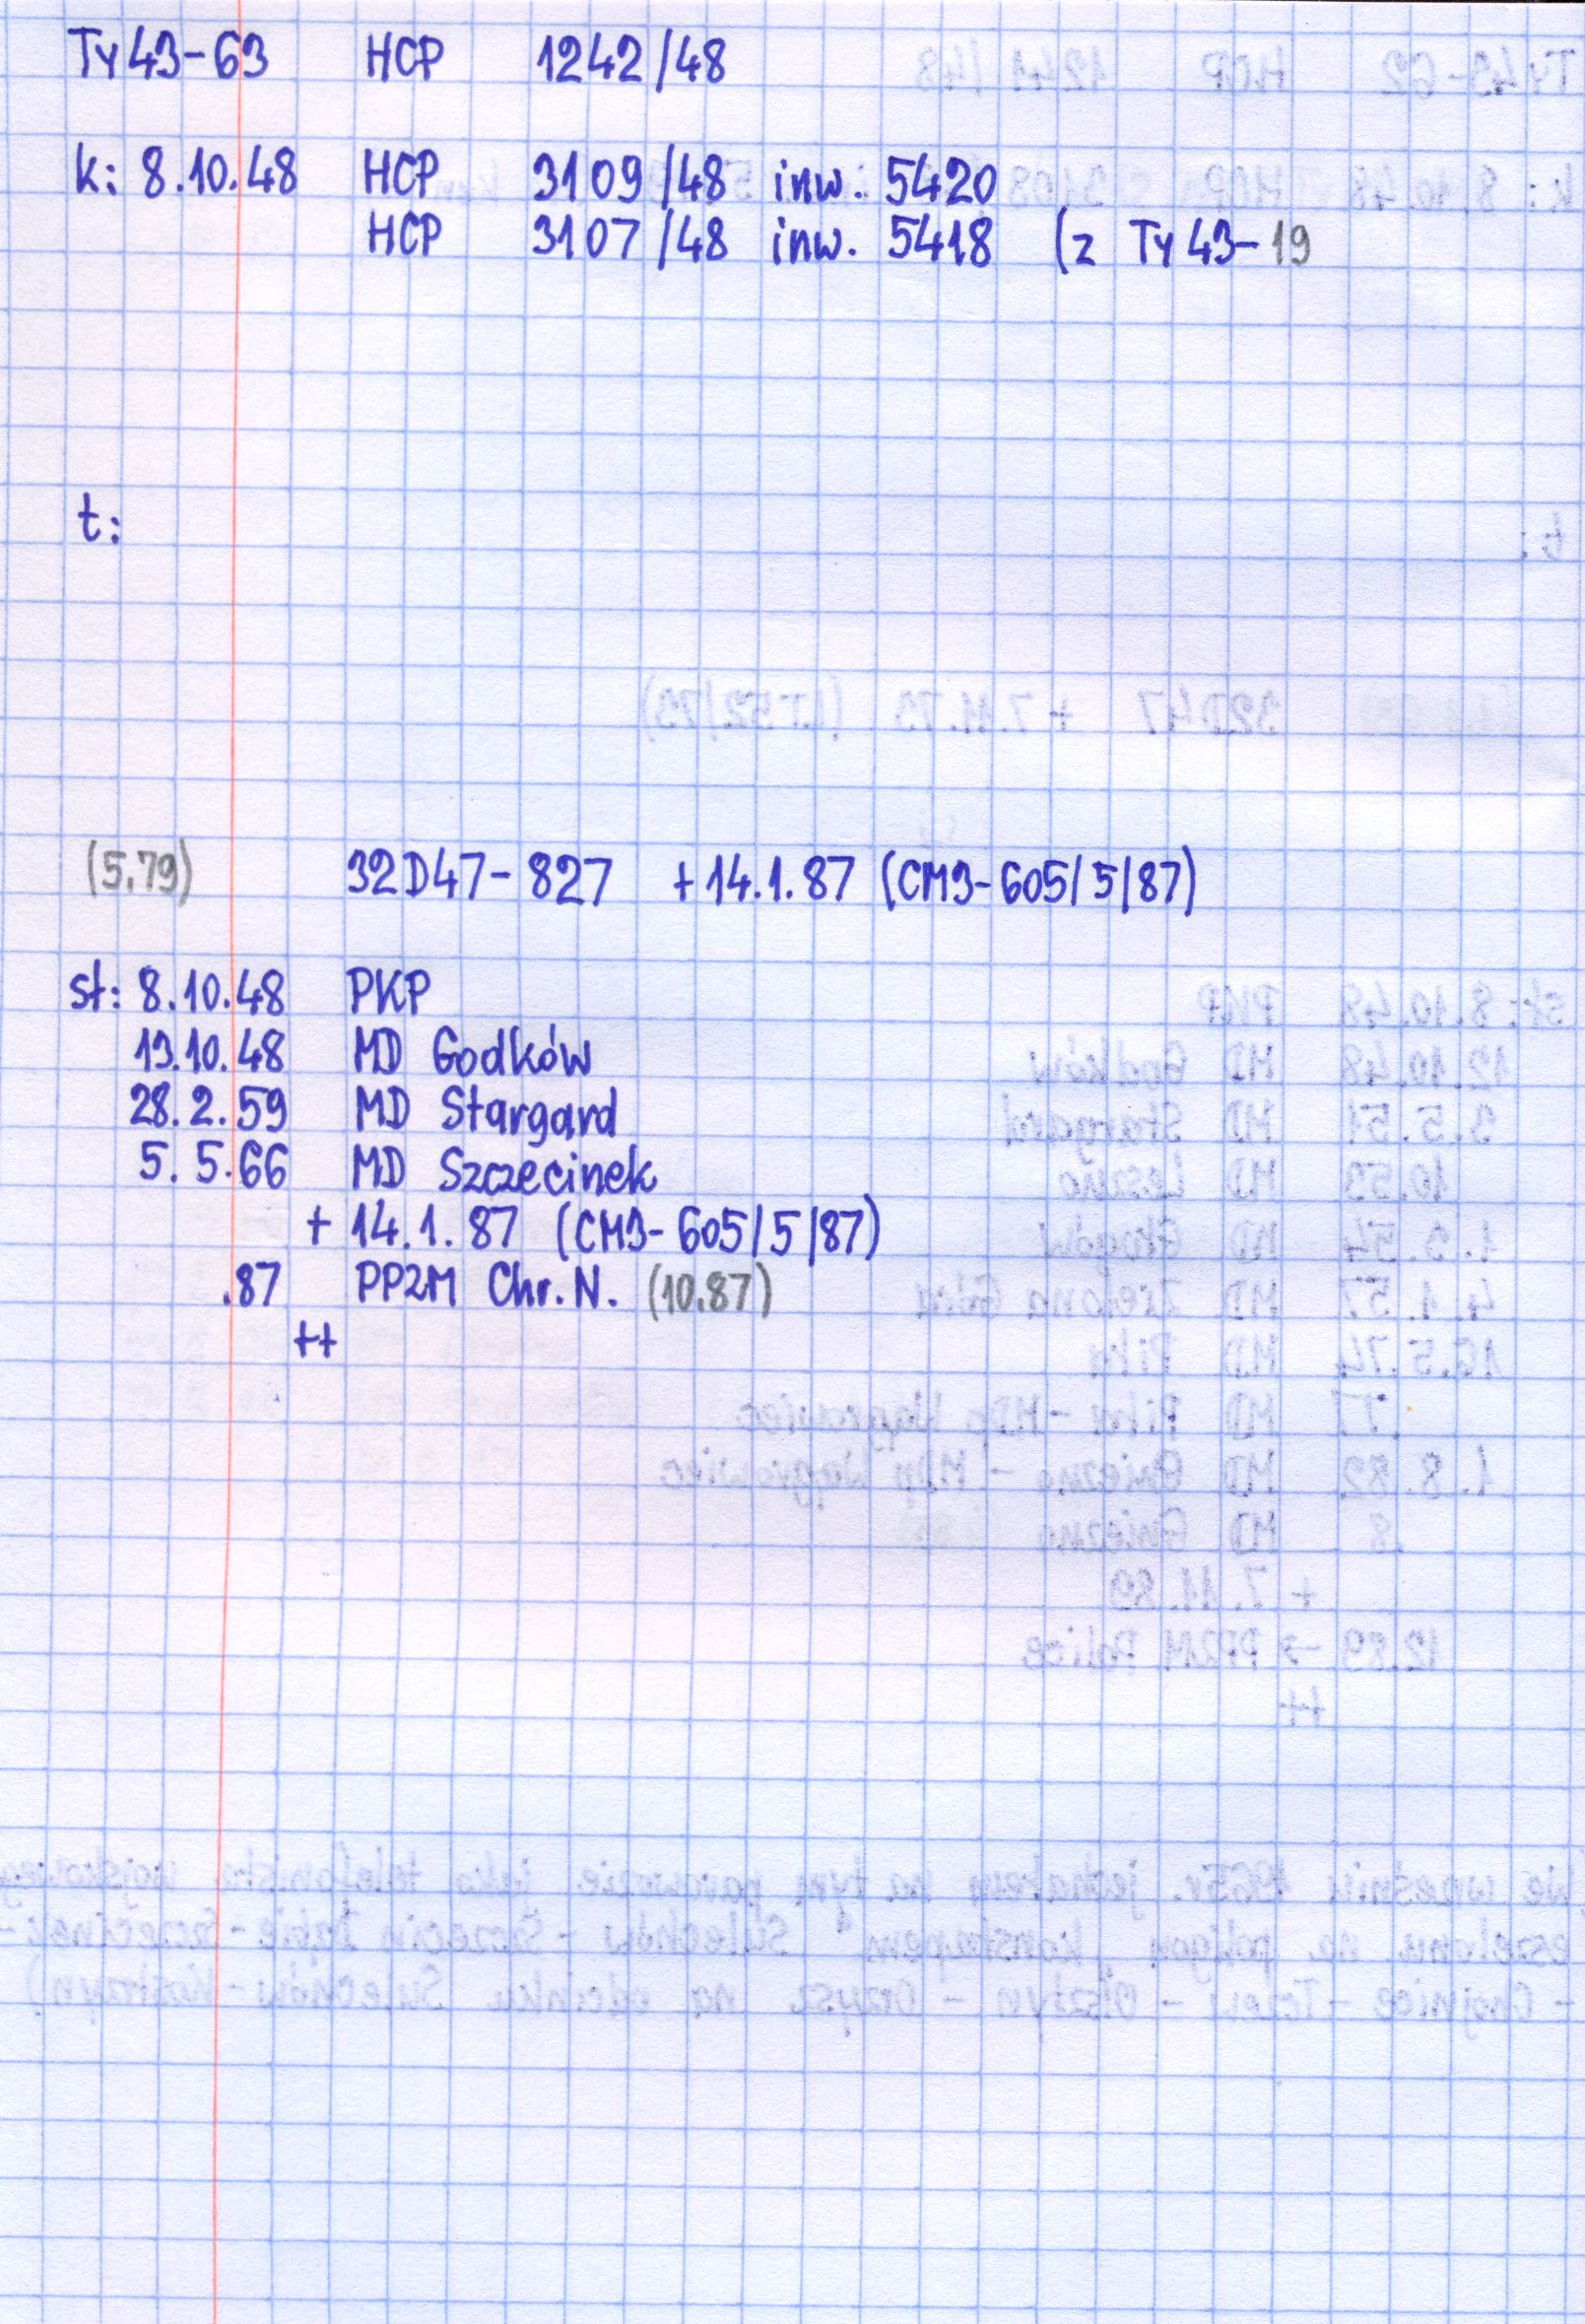 Ty43-63 HCP 1242/48
k: 8.10.48 HCP 3109/48 inw. 5420
HCP 3107/48 inw. 5418 (z Ty43-19
t:
(5.79) 32D47-827 +14.1.87 (CM9-605/5/87)
st: 8.10.48 PKP
19.10.48 MD Godków
28.2.59 MD Stargard
5.5.66 MD Szczecinek
+ 14.1.87 (CM9-605/5/87)
.87 PP2M Chr.N. (10.87)
++